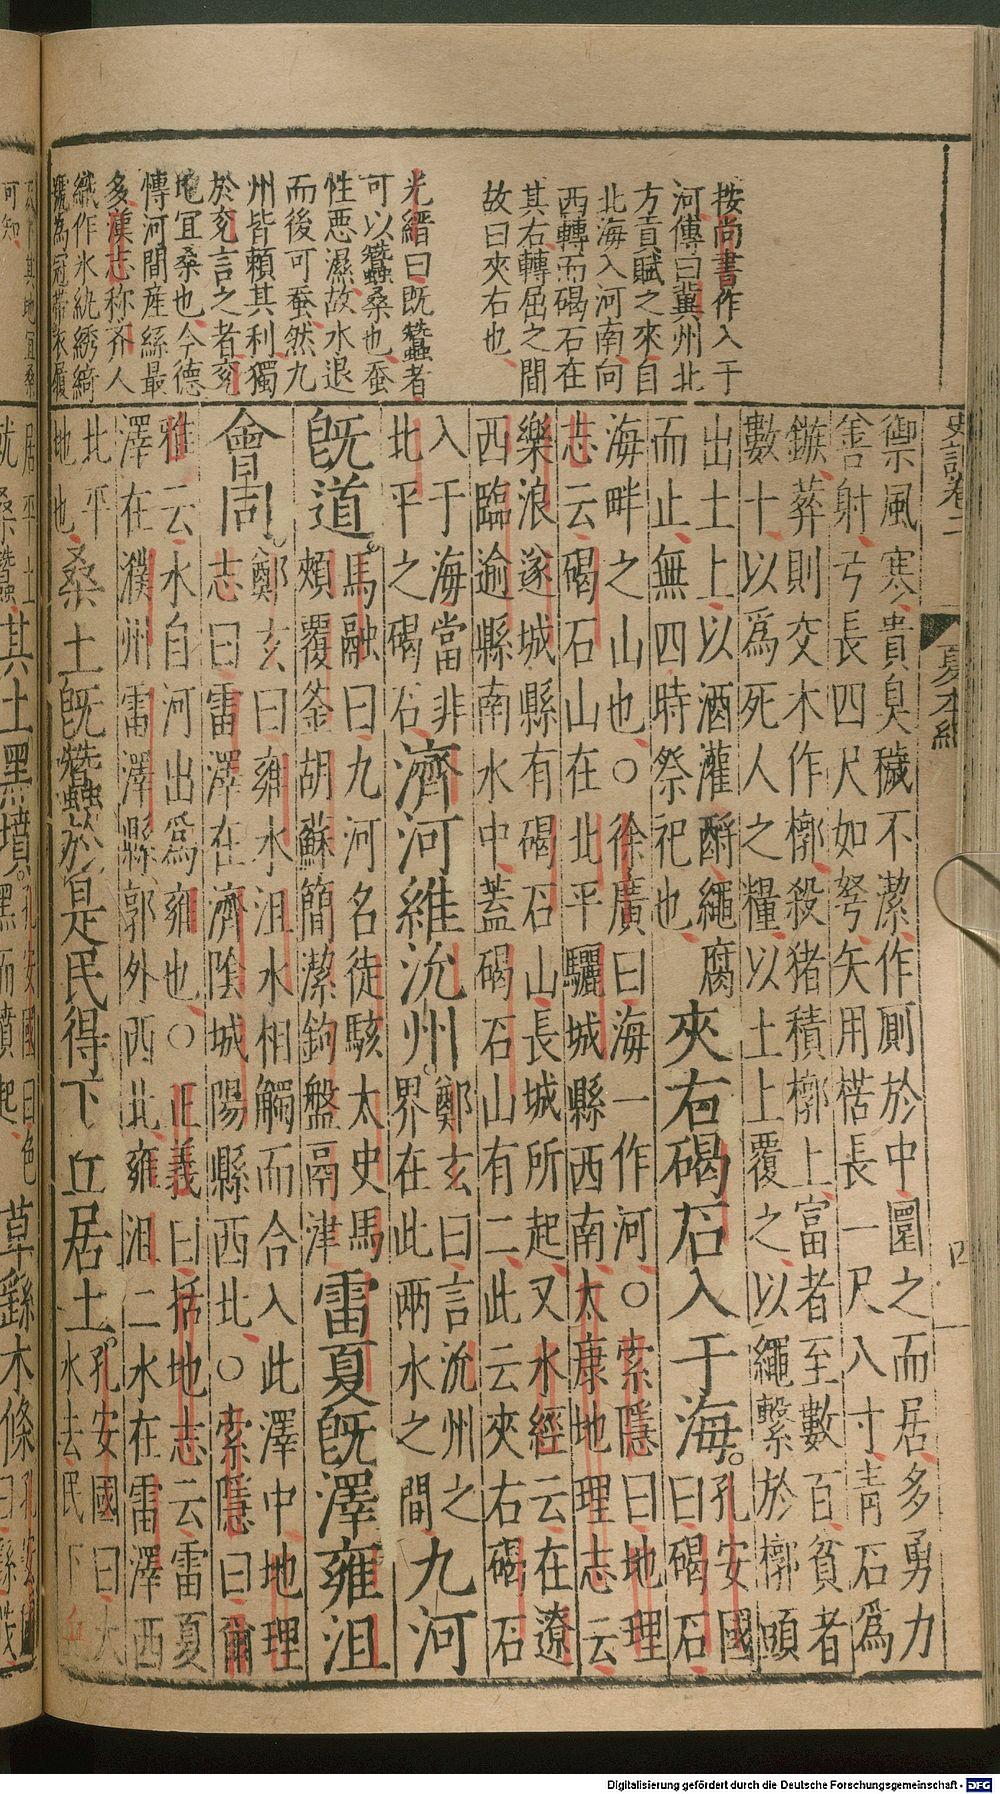 史記卷二 夏本紀 四
按尚書作入于
河傳曰冀州北
方貢賦之來自
北海入河南向
西轉而碣石在
其右轉屈之間
故曰夾右也
光縉曰既蠶者
可以蠶桑也蚕
性悪濕故水退
而後可蚕然九
州皆賴其利獨
於兗言之者兗
地宜桑也今德
傳河間産絲最
多漢志称齊人
織作氷紈綉綺
號為冠帶衣履
其地宜桑
可知
御風寒貴臭穢不潔作厠於中圜之而居多勇力
善射弓長四尺如弩矢用楛長一尺八寸青石爲
鏃葬則交木作槨殺猪積槨上富者至數百貧者
數十以爲死人之糧以土上覆之以繩繫於槨頭
出土上以酒灌酹繩腐
而止無四時祭祀也
夾右碣石入于海。孔安國
曰碣石
海畔之山也○徐廣曰海一作河○索隱曰地理
志云碣石山在北平驪城縣西南太康地理志云
樂浪遂城縣有碣石山長城所起又水經云在遼
西臨逾縣南水中蓋碣石山有二此云夾右碣石
入于海當非
北平之碣石
濟河維沇州。鄭玄曰言沇州之
界在此兩水之間
九河
既道。馬融曰九河名徒駭太史馬
頰覆釜胡蘇簡潔鉤盤鬲津
雷夏既澤雍沮
會同。鄭玄曰雍水沮水相觸而合入此澤中地理
志曰雷澤在濟陰城陽縣西北○索隱曰爾
雅云水自河出爲雍也○正義曰括地志云雷夏
澤在濮州雷澤縣郭外西北雍沮二水在雷澤西
北平
地也
桑土既蠶於是民得下丘居土。孔安國曰大
水去民下丘
居平土
就桑蠶
其土黑墳。孔安國曰色
黑而墳起
草繇木條孔安國
曰繇茂
Digitalisierung gefördert durch die Deutsche Forschungsgemeinschaft - DFG